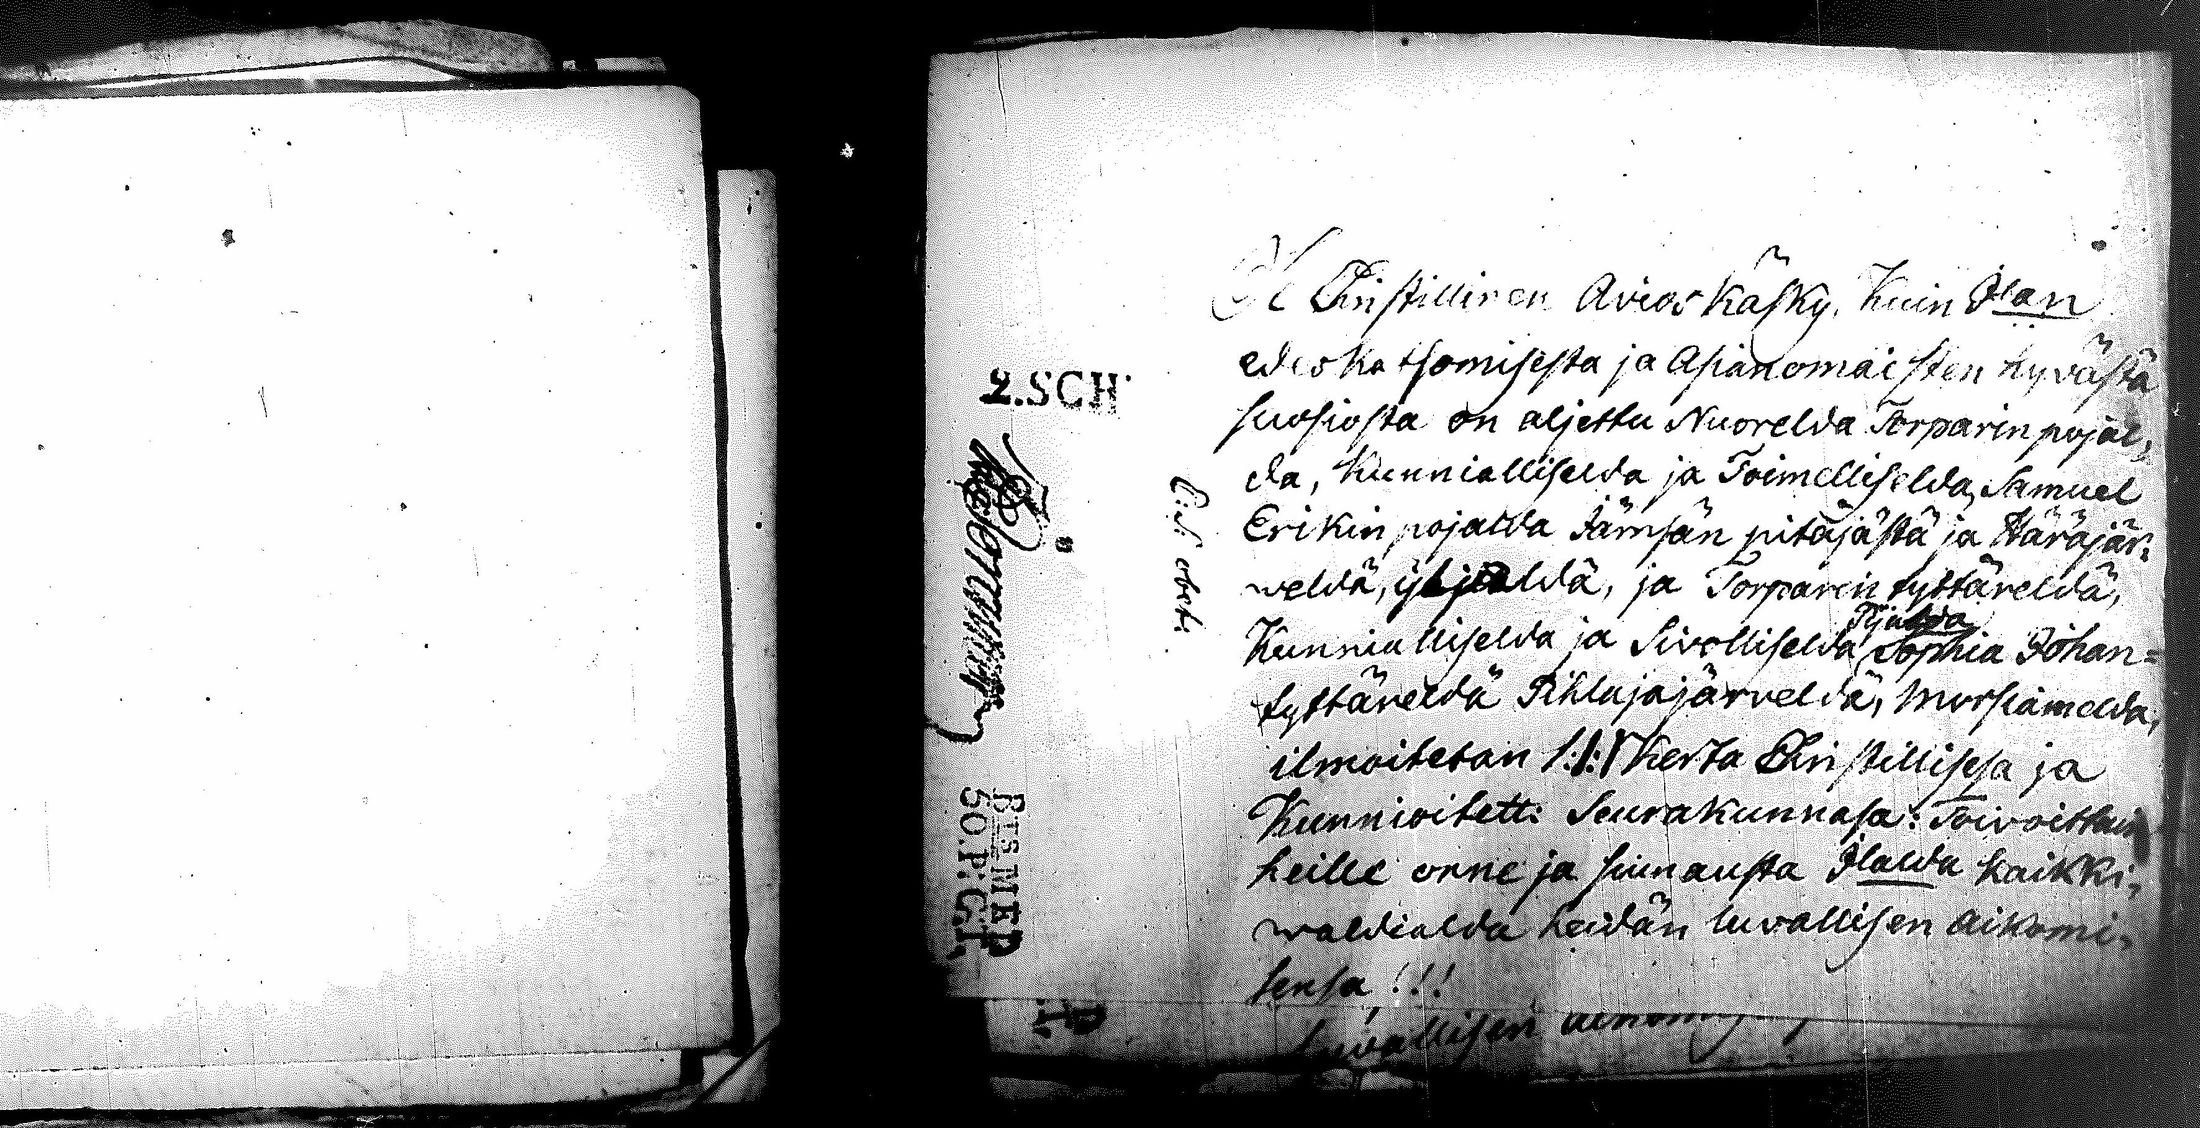 Christillinen Avios Käsky, Kuin Jlan
edeskatsomisesta ja Asianomaisten hyvästä
suosiosta on aljettu Nuorelda Torparin pojal,
da, Kunnialliselda ja Toimelliselda, Samuel
Erikin pojalda Jämsän pitäjästä ja Häräjär,
weldä, ja Torparin tyttäreldä,
Piialda
Kunnialliselda ja Sivolliselda Sophia Johan=
tyttäreldä Pihlajajärveldä, Morsiamelda,
ilmoitetan Kerta Christillisesä ja
Kunnioitett: Seurakunnasa: Toivoittain
heille onne ja siunausta Jlalda kaikki,
waldialda heidän luvallisen aikomi,
sensa !!!
luvallisen
2.SCH
BTSMED
50.P:G:T.